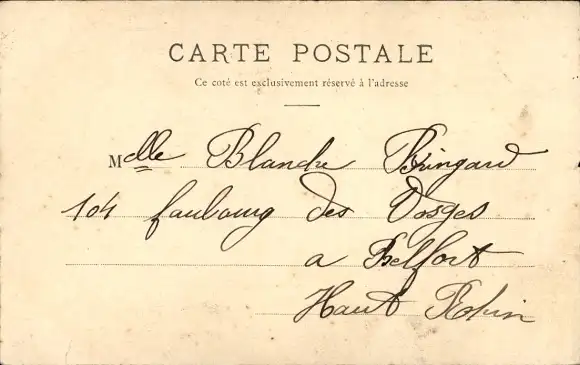 CARTE POSTALE
Ce coté est exclusivement réservé à l'adresse
Melle Blanche Bringard
104 faubourg des Vosges
a Belfort
Haut Rhin